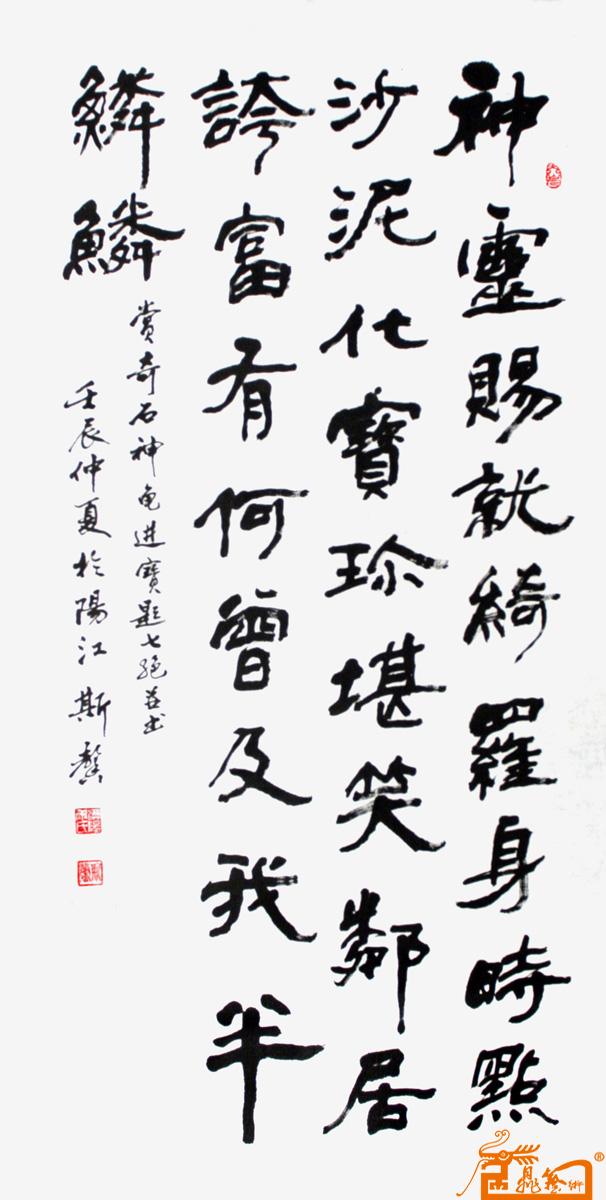 神靈賜就綺羅身時點
沙泥化寶珍堪笑鄰居
誇富有何曾及我半
鱗鱗
賞奇石神龟进寶題七絕并书
壬辰仲夏於陽江 斯